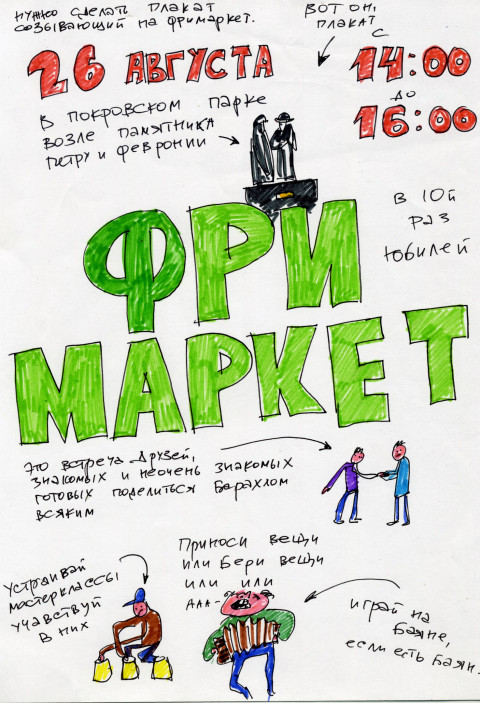 нужно сделать плакат
созывающий на фримаркет.
ВОТ ОН,
плакат
26 АВГУСТА
с
14:00
до
16:00
В ПОКРОВСКОМ парке
возле памятника
петру и февронии
В 10й
раз
юбилей
ФРИ
МАРКЕТ
это встреча друзей,
знакомых и неочень знакомых
готовых поделиться барахлом
всяким
Приноси вещи
или бери вещи
или или
ААА-
устраивай
мастерклассы
учавствуй
в них
играй на
баяне,
если есть баян.